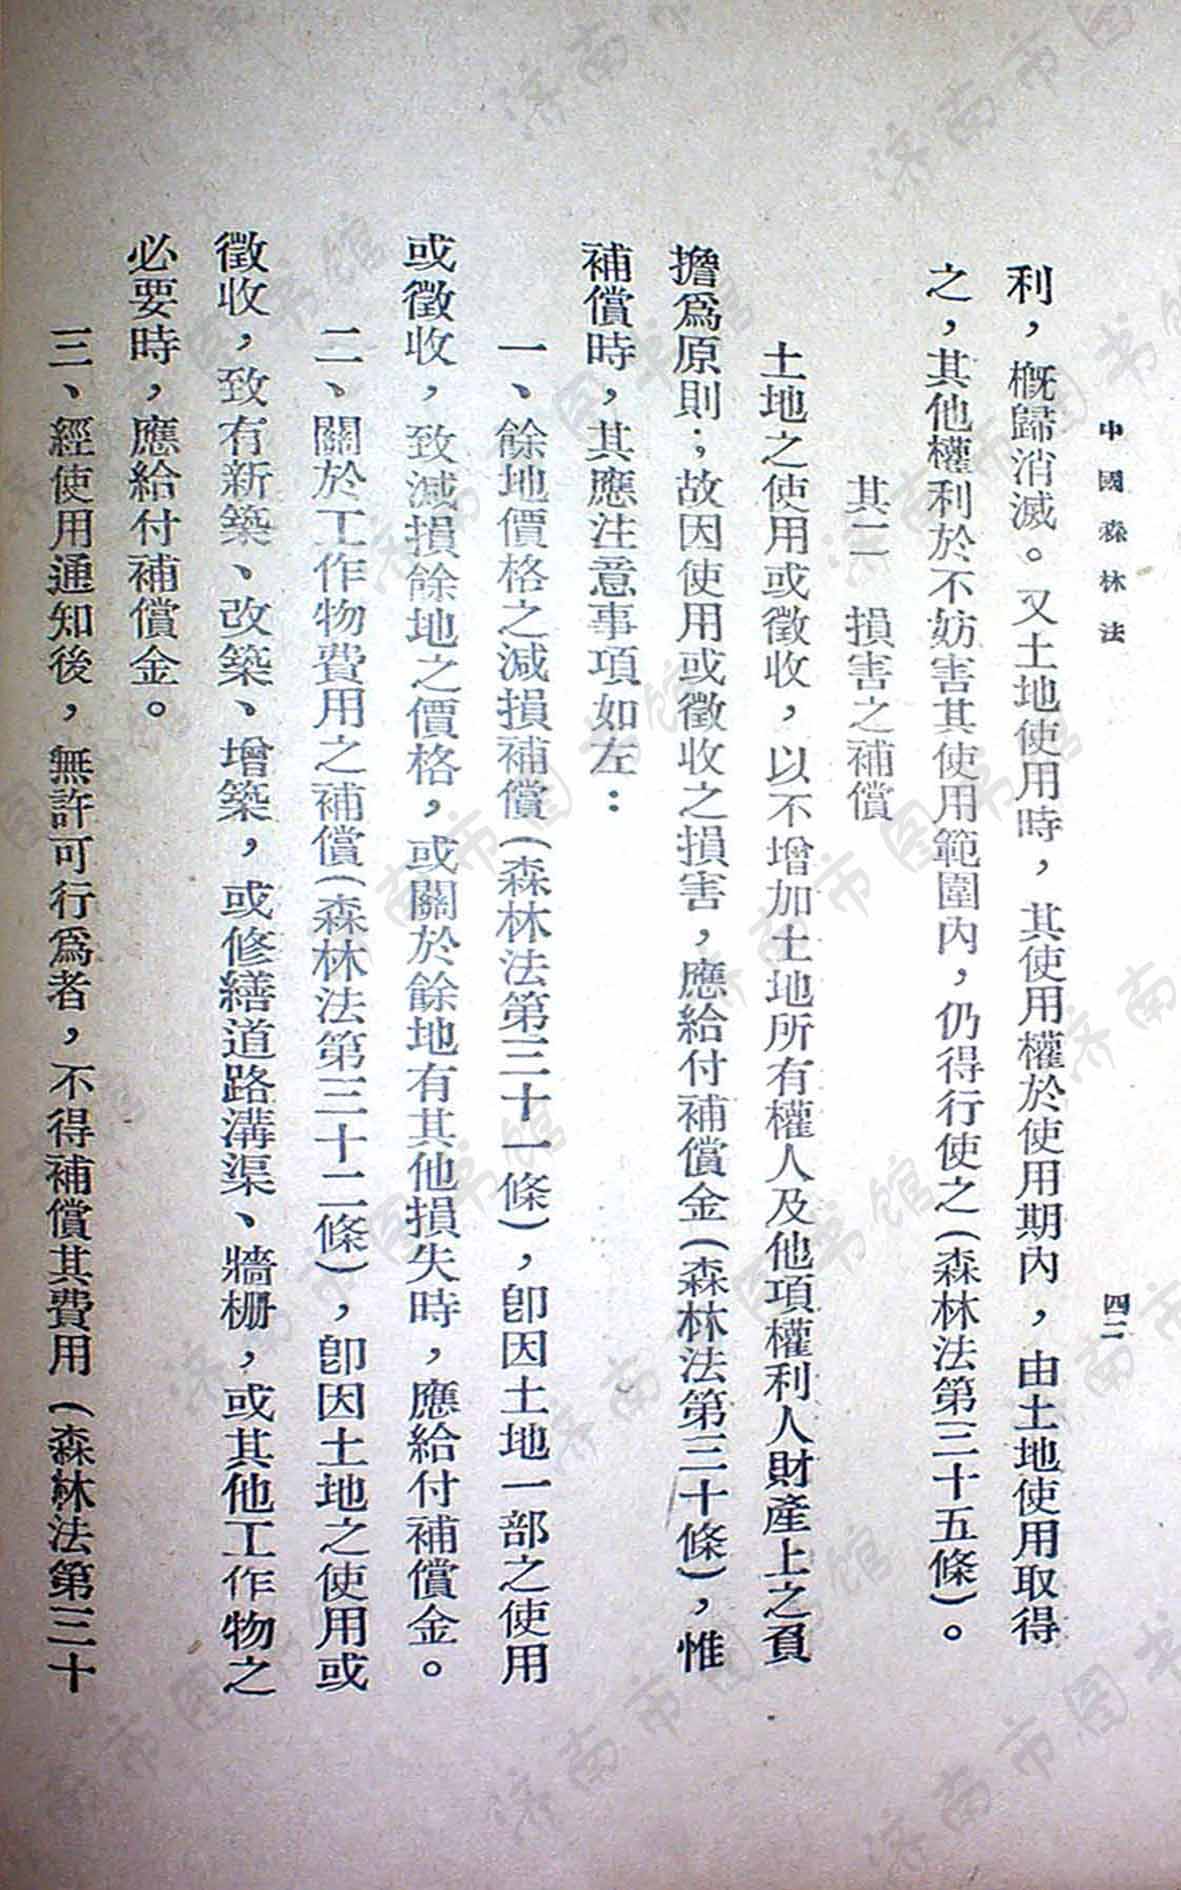 中國森林法　　四二
利，概歸消滅。又土地使用時，其使用權於使用期內，由土地使用取得
之，其他權利於不妨害其使用範圍內，仍得行使之（森林法第三十五條）。
其二　損害之補償
土地之使用或徵收，以不增加土地所有權人及他項權利人財產上之負
擔爲原則；故因使用或徵收之損害，應給付補償金（森林法第三十條），惟
補償時，其應注意事項如左：
一、餘地價格之減損補償（森林法第三十一條），卽因土地一部之使用
或徵收，致減損餘地之價格，或關於餘地有其他損失時，應給付補償金。
二、關於工作物費用之補償（森林法第三十二條），卽因土地之使用或
徵收，致有新築、改築、增築，或修繕道路溝渠、牆柵，或其他工作物之
必要時，應給付補償金。
三、經使用通知後，無許可行爲者，不得補償其費用（森林法第三十
济南市图书馆